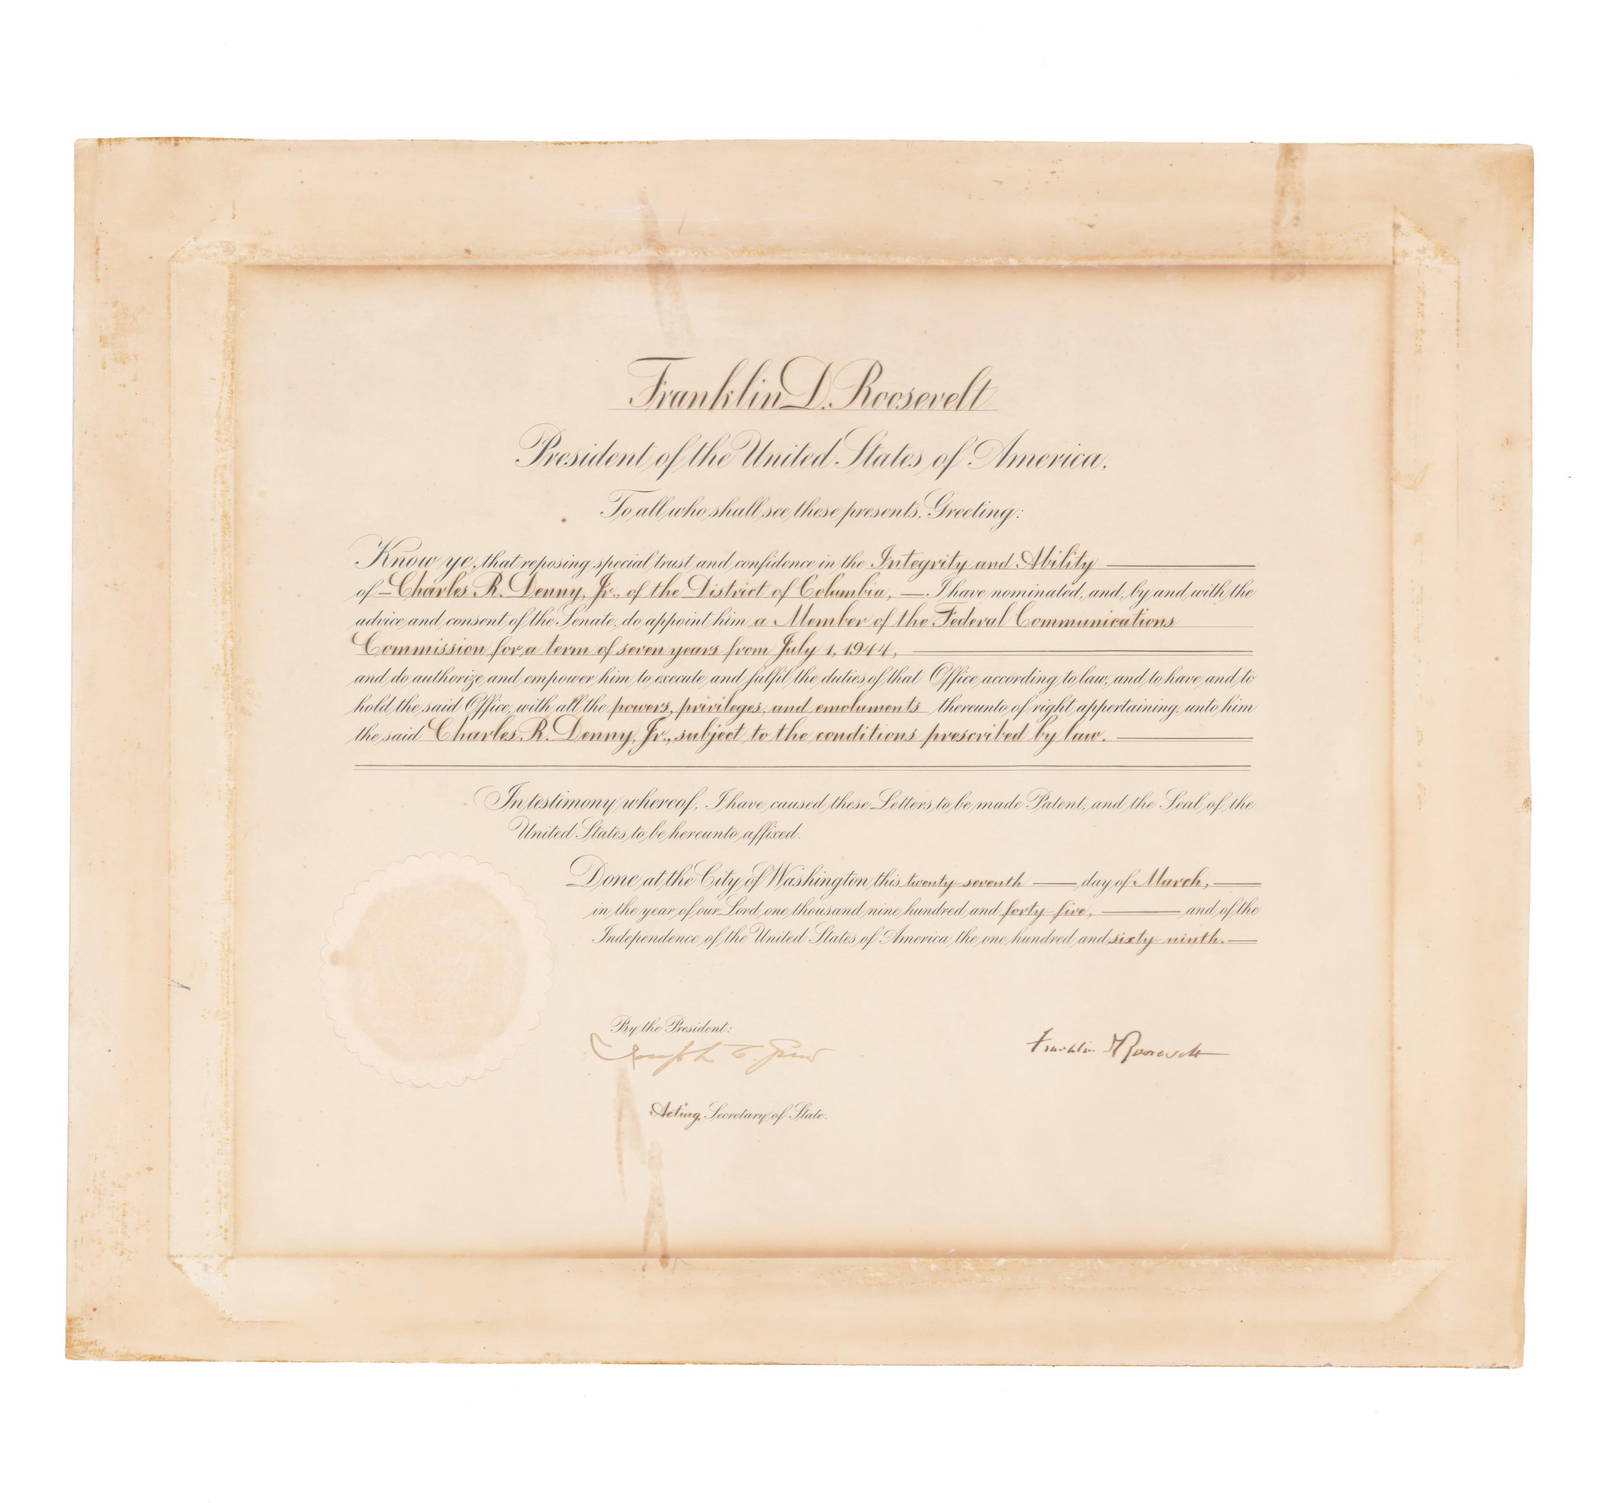 Franklin D. Roosevelt
President of the United States of America.
To all who shall see these presents, Greeting:
Know ye, that reposing special trust and confidence in the Integrity and Ability
of Charles R. Denny, Jr., of the District of Columbia, I have nominated, and, by and with, the
advice and consent of the Senate, do appoint him a Member of the Federal Communications
Commission for a term of seven years from July 1, 1944,
and do authorize and empower him to execute and fulfil the duties of that Office according to law, and to have and to
hold the said Office, with all the powers, privileges, and emoluments thereunto of right appertaining, unto him
the said Charles R. Denny, Jr., subject to the conditions prescribed by law.
In testimony whereof, I have caused these Letters to be made Patent, and the Seal of the
United States to be hereunto affixed.
Done at the City of Washington this twenty-seventh day of March,
in the year of our Lord one thousand nine hundred and forty-five, and of the
Independence of the United States of America the one hundred and sixty-ninth.
By the President:
Joseph C. Grew
Franklin D Roosevelt
Acting Secretary of State.